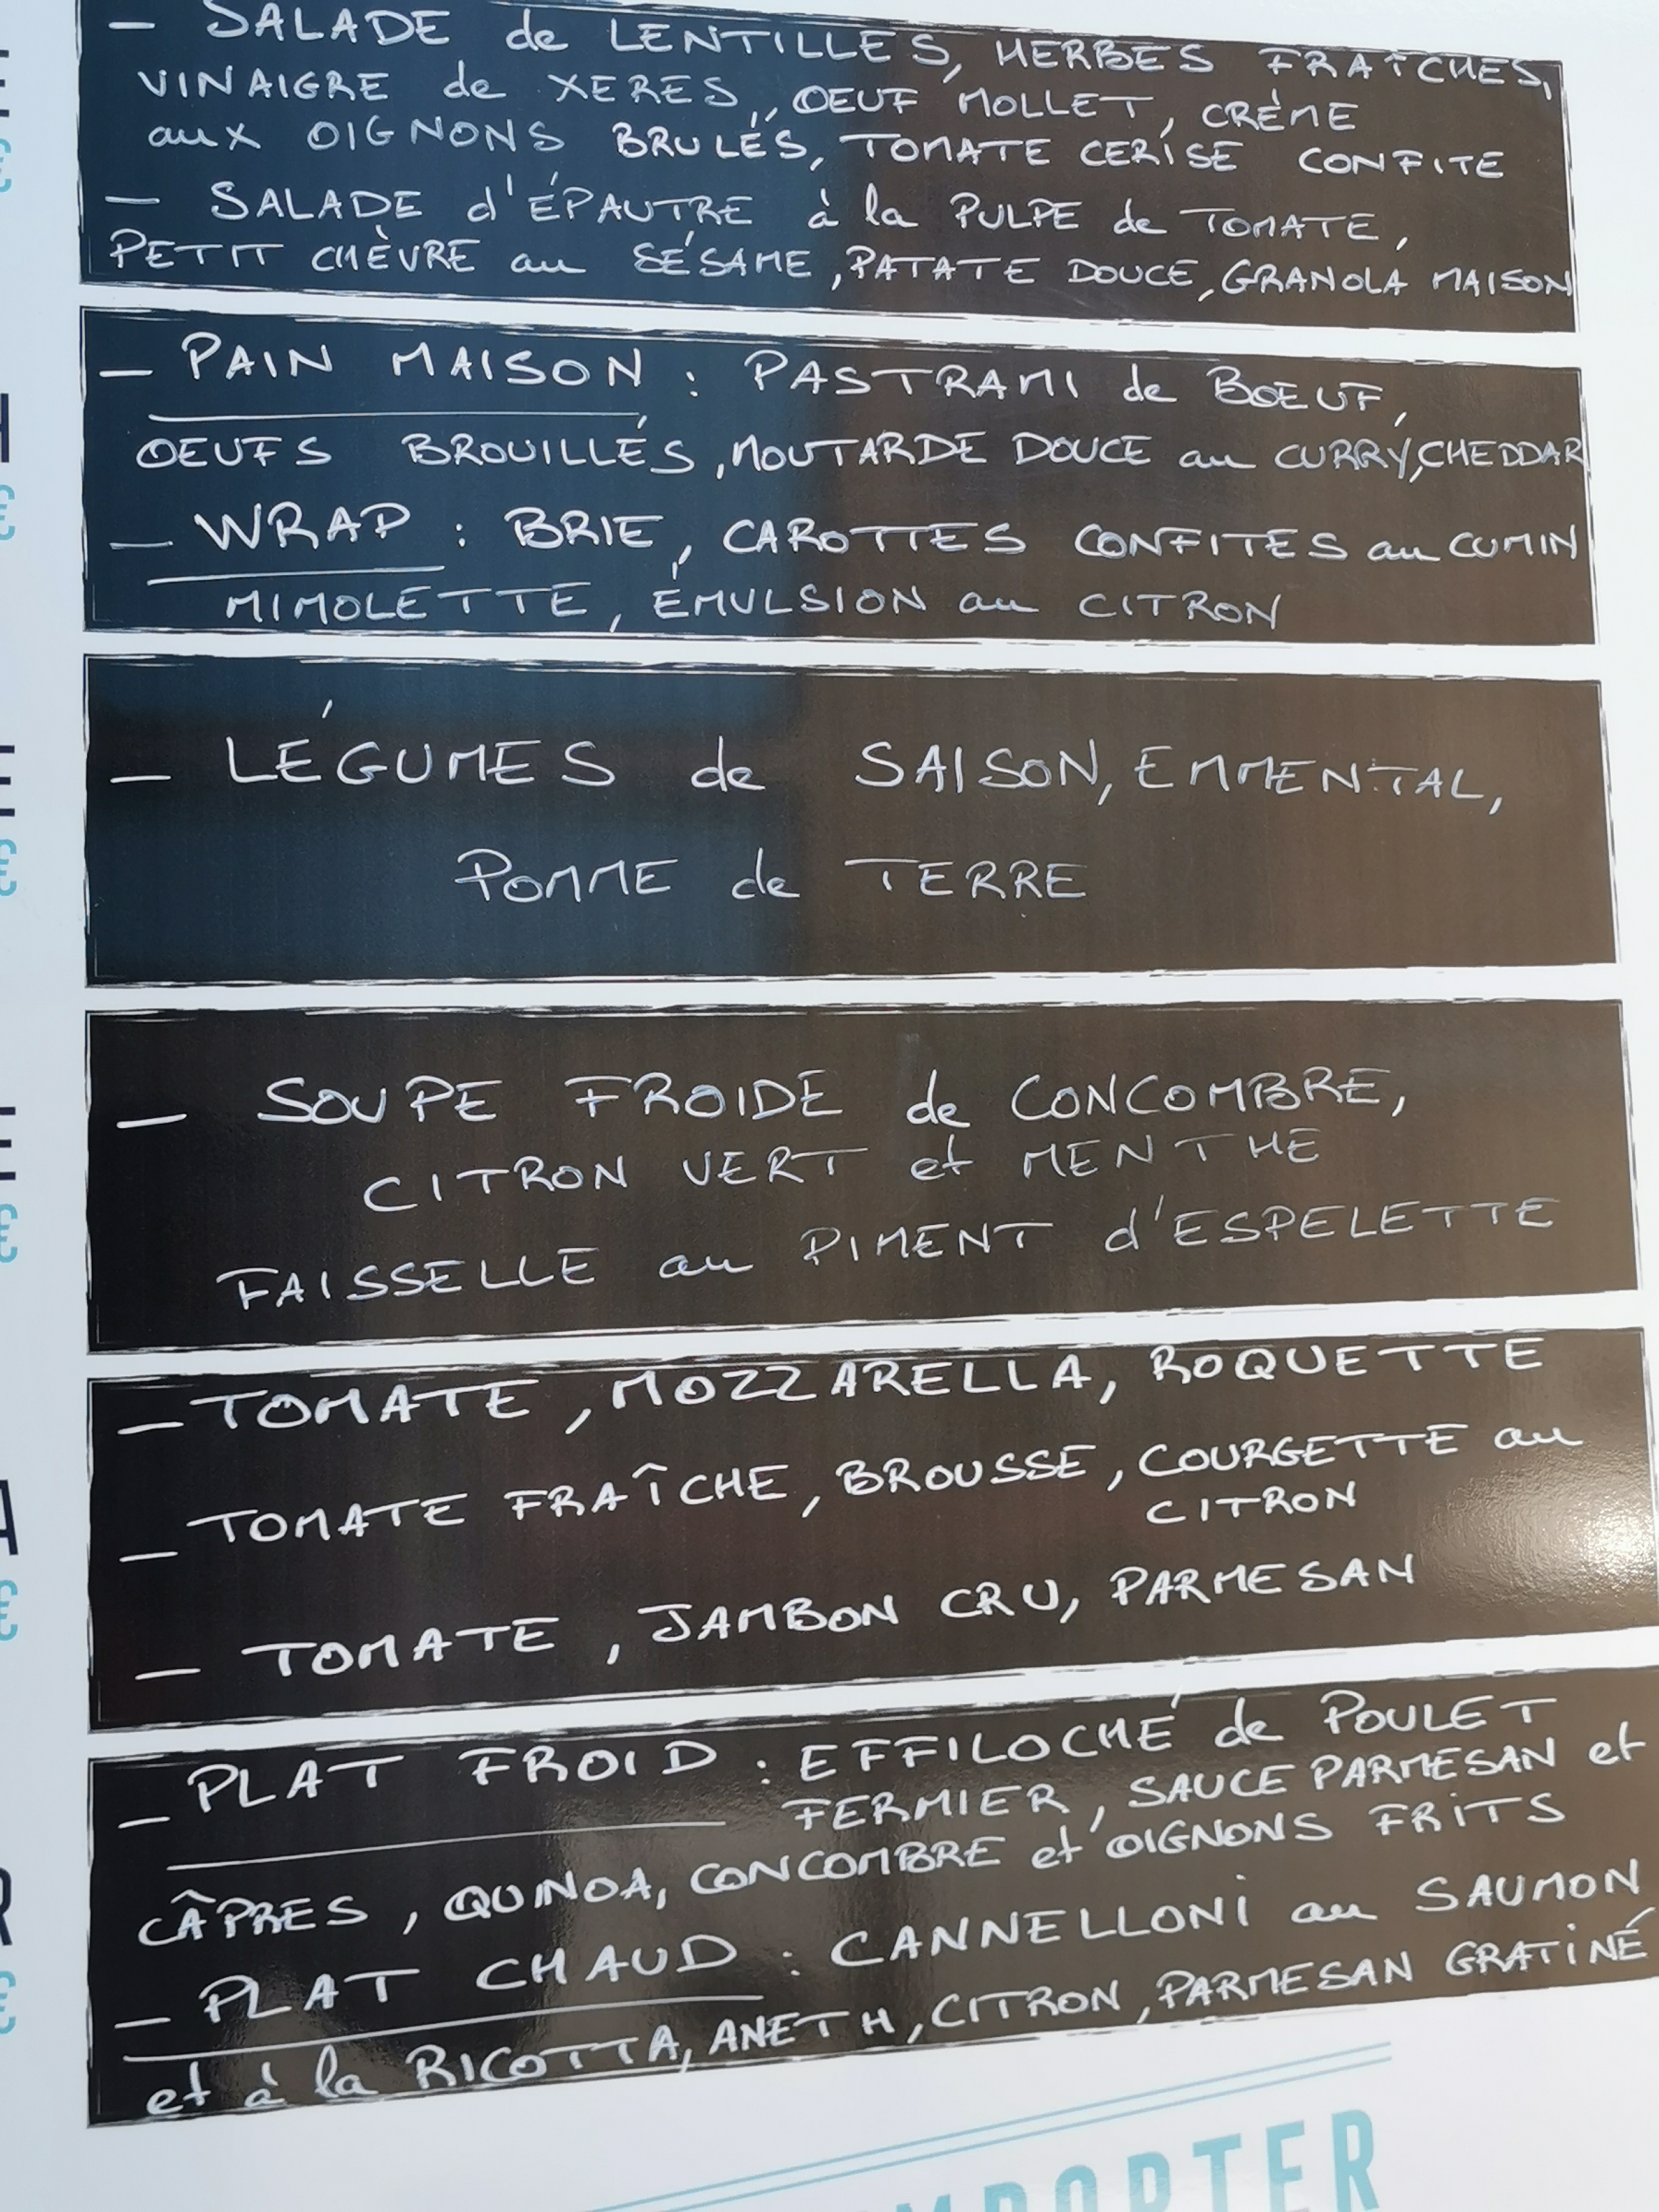 - SALADE de LENTILLES, HERBES FRAÎCHES,
VINAIGRE de XERES, OEUF MOLLET, CRÈME
aux OIGNONS BRULÉS, TOMATE CERISE CONFITE
- SALADE d'ÉPAUTRE à la PULPE de TOMATE,
PETIT CHÈVRE au SÉSAME, PATATE DOUCE, GRANOLA MAISON
- PAIN MAISON : PASTRAMI de BOEUF,
OEUFS BROUILLÉS, MOUTARDE DOUCE au CURRY, CHEDDAR
- WRAP : BRIE, CAROTTES CONFITES au CUMIN
MIMOLETTE, ÉMULSION au CITRON
- LÉGUMES de SAISON, EMMENTAL,
POMME de TERRE
- SOUPE FROIDE de CONCOMBRE,
CITRON VERT et MENTHE
FAISSELLE au PIMENT d'ESPELETTE
- TOMATE, MOZZARELLA, ROQUETTE
- TOMATE FRAÎCHE, BROUSSE, COURGETTE au
CITRON
- TOMATE, JAMBON CRU, PARMESAN
- PLAT FROID : EFFILOCHÉ de POULET
FERMIER, SAUCE PARMESAN et
CÂPRES, QUINOA, CONCOMBRE et OIGNONS FRITS
- PLAT CHAUD : CANNELLONI au SAUMON
et à la RICOTTA, ANETH, CITRON, PARMESAN GRATINÉ
MPORTER